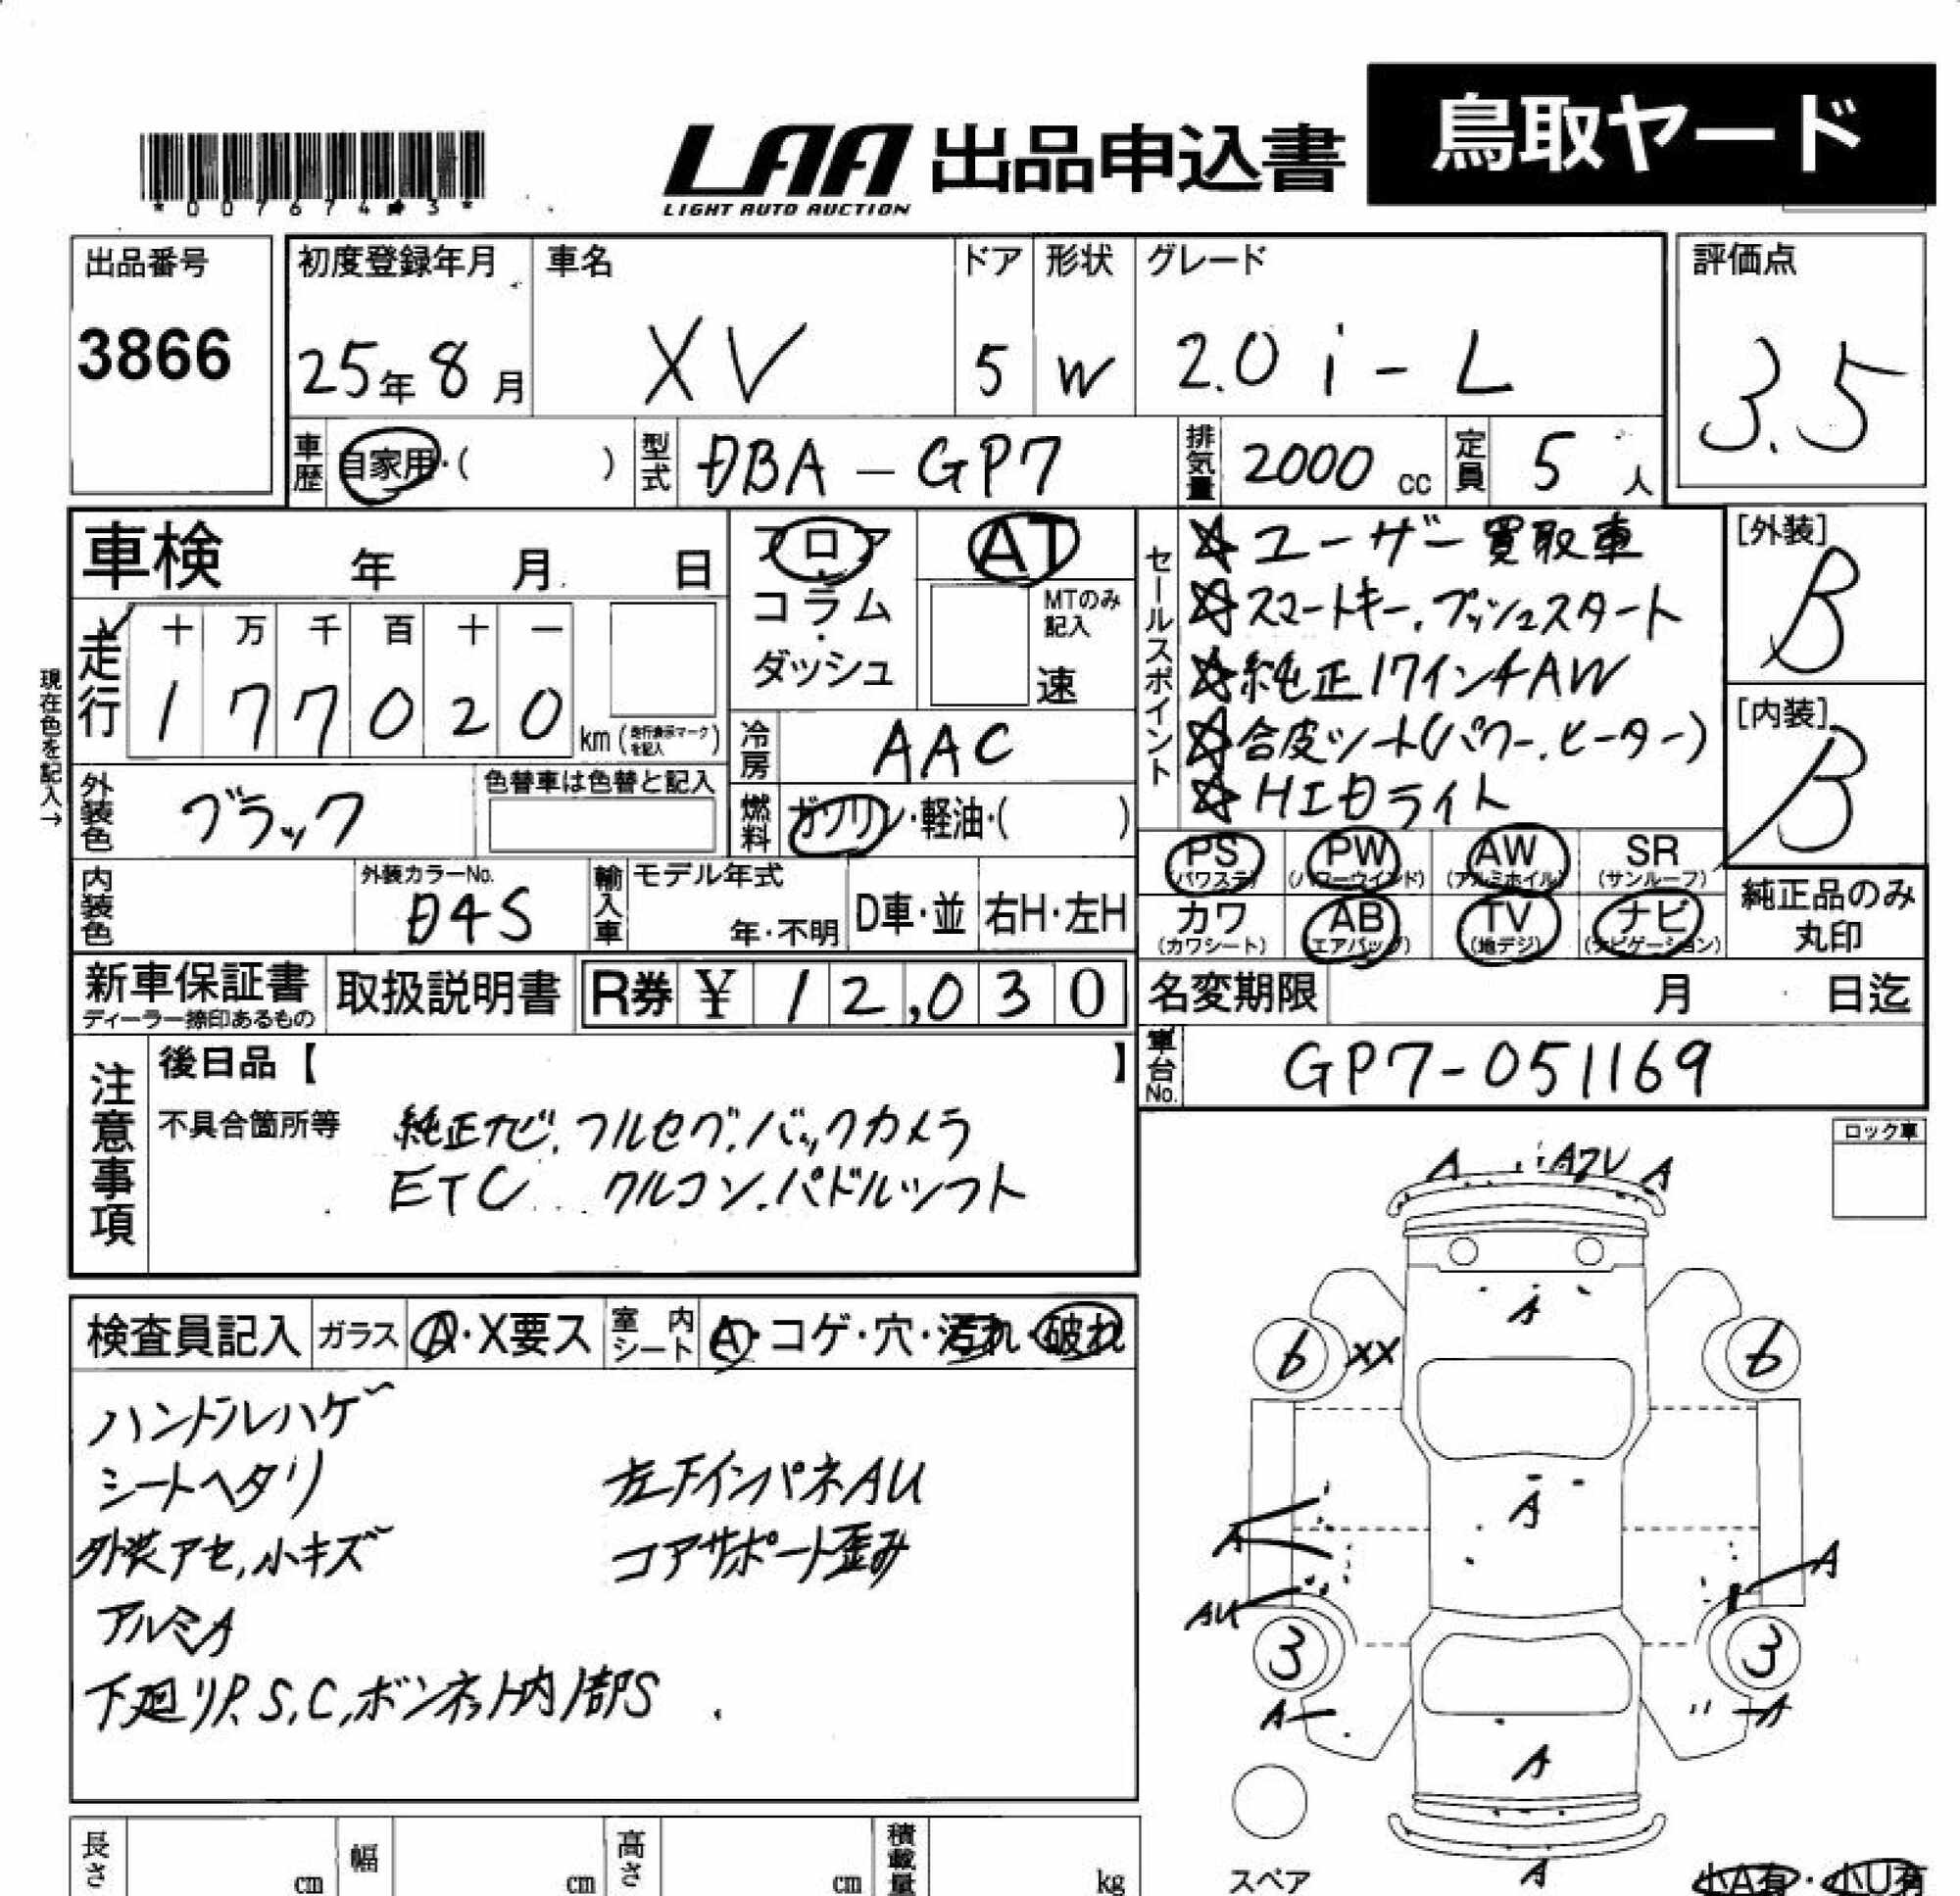 鳥取ヤード
LAA 出品申込書
LIGHT AUTO AUCTION
出品番号
3866
初度登録年月
25年8月
車名
XV
ドア
5
形状
W
グレード
2.0i-L
評価点
3.5
車歴
自家用・( )
型式
DBA-GP7
排気量
2000 cc
定員
5人
車検 年 月 日
フロア
コラム
・
ダッシュ
AT
MTのみ
記入
速
走行
十 万 千 百 十 一
1 7 7 0 2 0
km (走行表示マークを記入)
現在色を記入→
冷房
AAC
外装色
ブラック
色替車は色替と記入
燃料
ガソリン・軽油・( )
内装色
外装カラーNo.
D4S
輸入車
モデル年式
年・不明
D車・並
右H・左H
セールスポイント
☆ユーザー買取車
☆スマートキー.プッシュスタート
☆純正17インチAW
☆合皮シート(パワー.ヒーター)
☆HIDライト
[外装]
B
[内装]
B
PS
(パワステ)
PW
(パワーウインド)
AW
(アルミホイル)
SR
(サンルーフ)
カワ
(カワシート)
AB
(エアバッグ)
TV
(地デジ)
ナビ
(ナビゲーション)
純正品のみ
丸印
新車保証書
ディーラー捺印あるもの
取扱説明書
R券 ¥ 12,030
名変期限 月 日迄
車台No.
GP7-051169
注意事項
後日品【 】
不具合箇所等
純正ナビ.フルセグ.バックカメラ
ETC クルコン.パドルシフト
ロック車
検査員記入
ガラス
A・X要ス
室内
シート
A・コゲ・穴・汚れ・破れ
ハンドルハゲ
シートヘタリ
左下インパネAU
外装アセ,小キズ
コアサポート歪み
アルミA
下廻りP.S,C,ボンネット内部S
A
A
A
6
XX
6
A
A
A
AU
3
3
A
A
A
A
スペア
小A有・小U有
長さ cm
幅 cm
高さ cm
積載量 kg